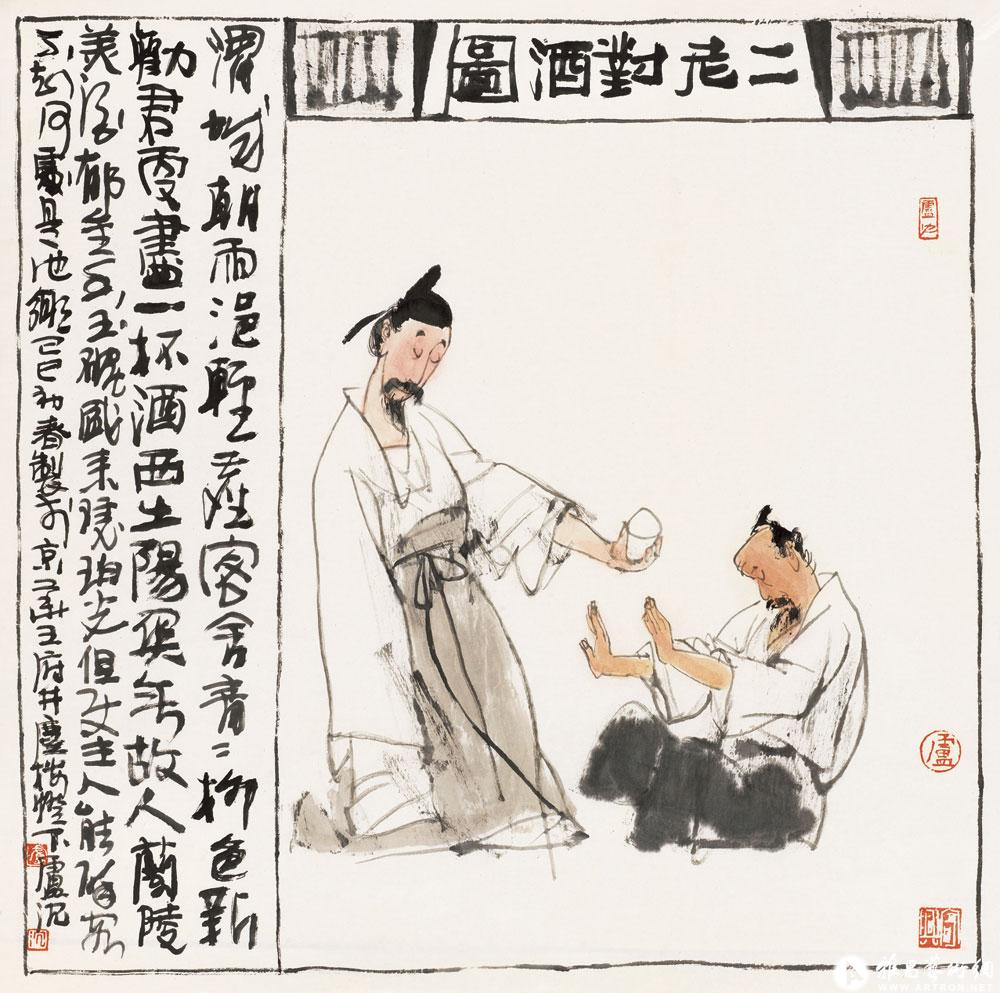 二老對酒圖
渭城朝雨浥輕塵客舍青〻柳色新
勸君更盡一杯酒西出陽關無故人蘭陵
美酒郁金香玉碗盛來琥珀光但使主人能醉客
不知何處是他鄉己巳初春製於京華王府井燈下盧沉
盧沉
盧
雅昌藝術網
WWW.ARTRON.NET